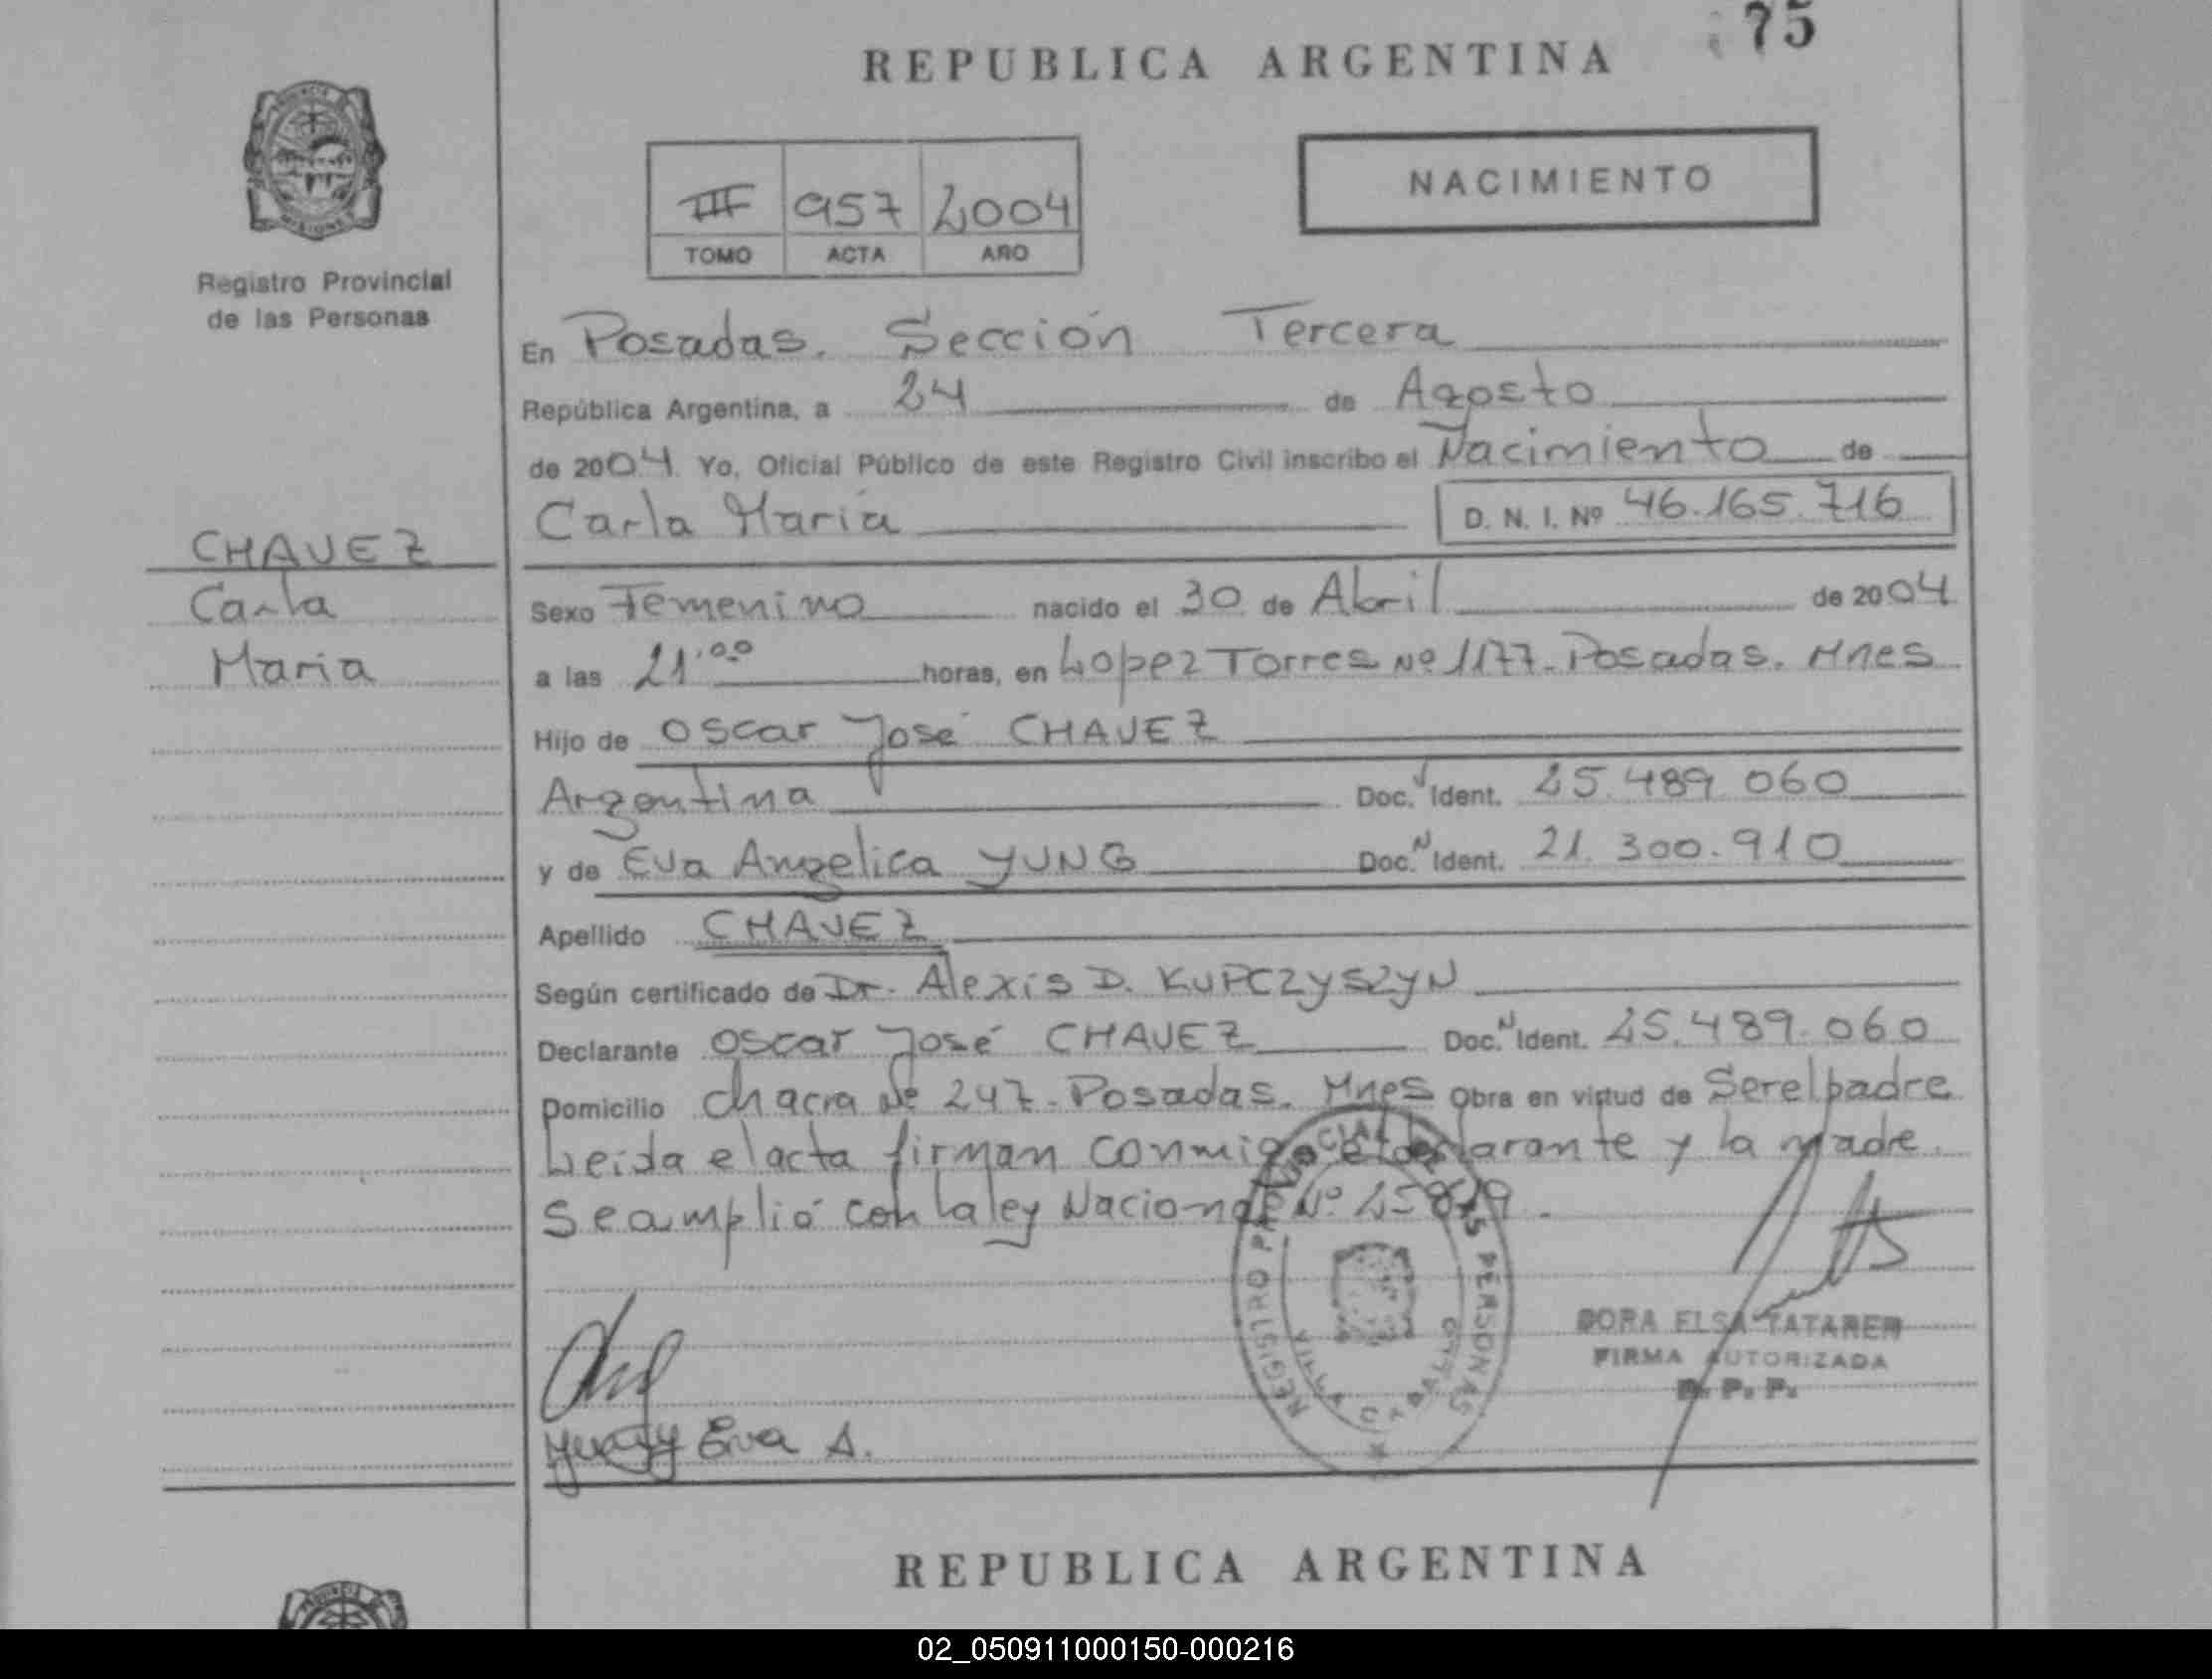 75
REPUBLICA ARGENTINA
PROVINCIA DE
MISIONES
Registro Provincial
de las Personas
III 957 2004
TOMO ACTA AÑO
NACIMIENTO
En Posadas. Sección Tercera
República Argentina, a 24 de Agosto
de 2004. Yo, Oficial Público de este Registro Civil inscribo el Nacimiento de
Carla María D. N. I. Nº 46.165.716
CHAVEZ
Carla
Maria
Sexo Femenino nacido el 30 de Abril de 2004
a las 21:00 horas, en Lopez Torres Nº 1177. Posadas. Mnes
Hijo de Oscar José CHAVEZ
Argentina Doc. N Ident. 25.489.060
y de Eva Angelica YUNG Doc. N Ident. 21.300.910
Apellido CHAVEZ
Según certificado de Dr. Alexis D. KUPCZYSZYN
Declarante Oscar José CHAVEZ Doc. N Ident. 25.489.060
Domicilio chacra Nº 247. Posadas. Mnes Obra en virtud de Ser el padre
Leida el acta firman conmigo el declarante y la madre.
Se amplió con la ley Nacional Nº 25819.
REGISTRO PROVINCIAL DE LAS PERSONAS
VILLA CABELLO
DORA ELSA TATAREN
FIRMA AUTORIZADA
R. P. P.
Yung Eva A.
REPUBLICA ARGENTINA
02_050911000150-000216